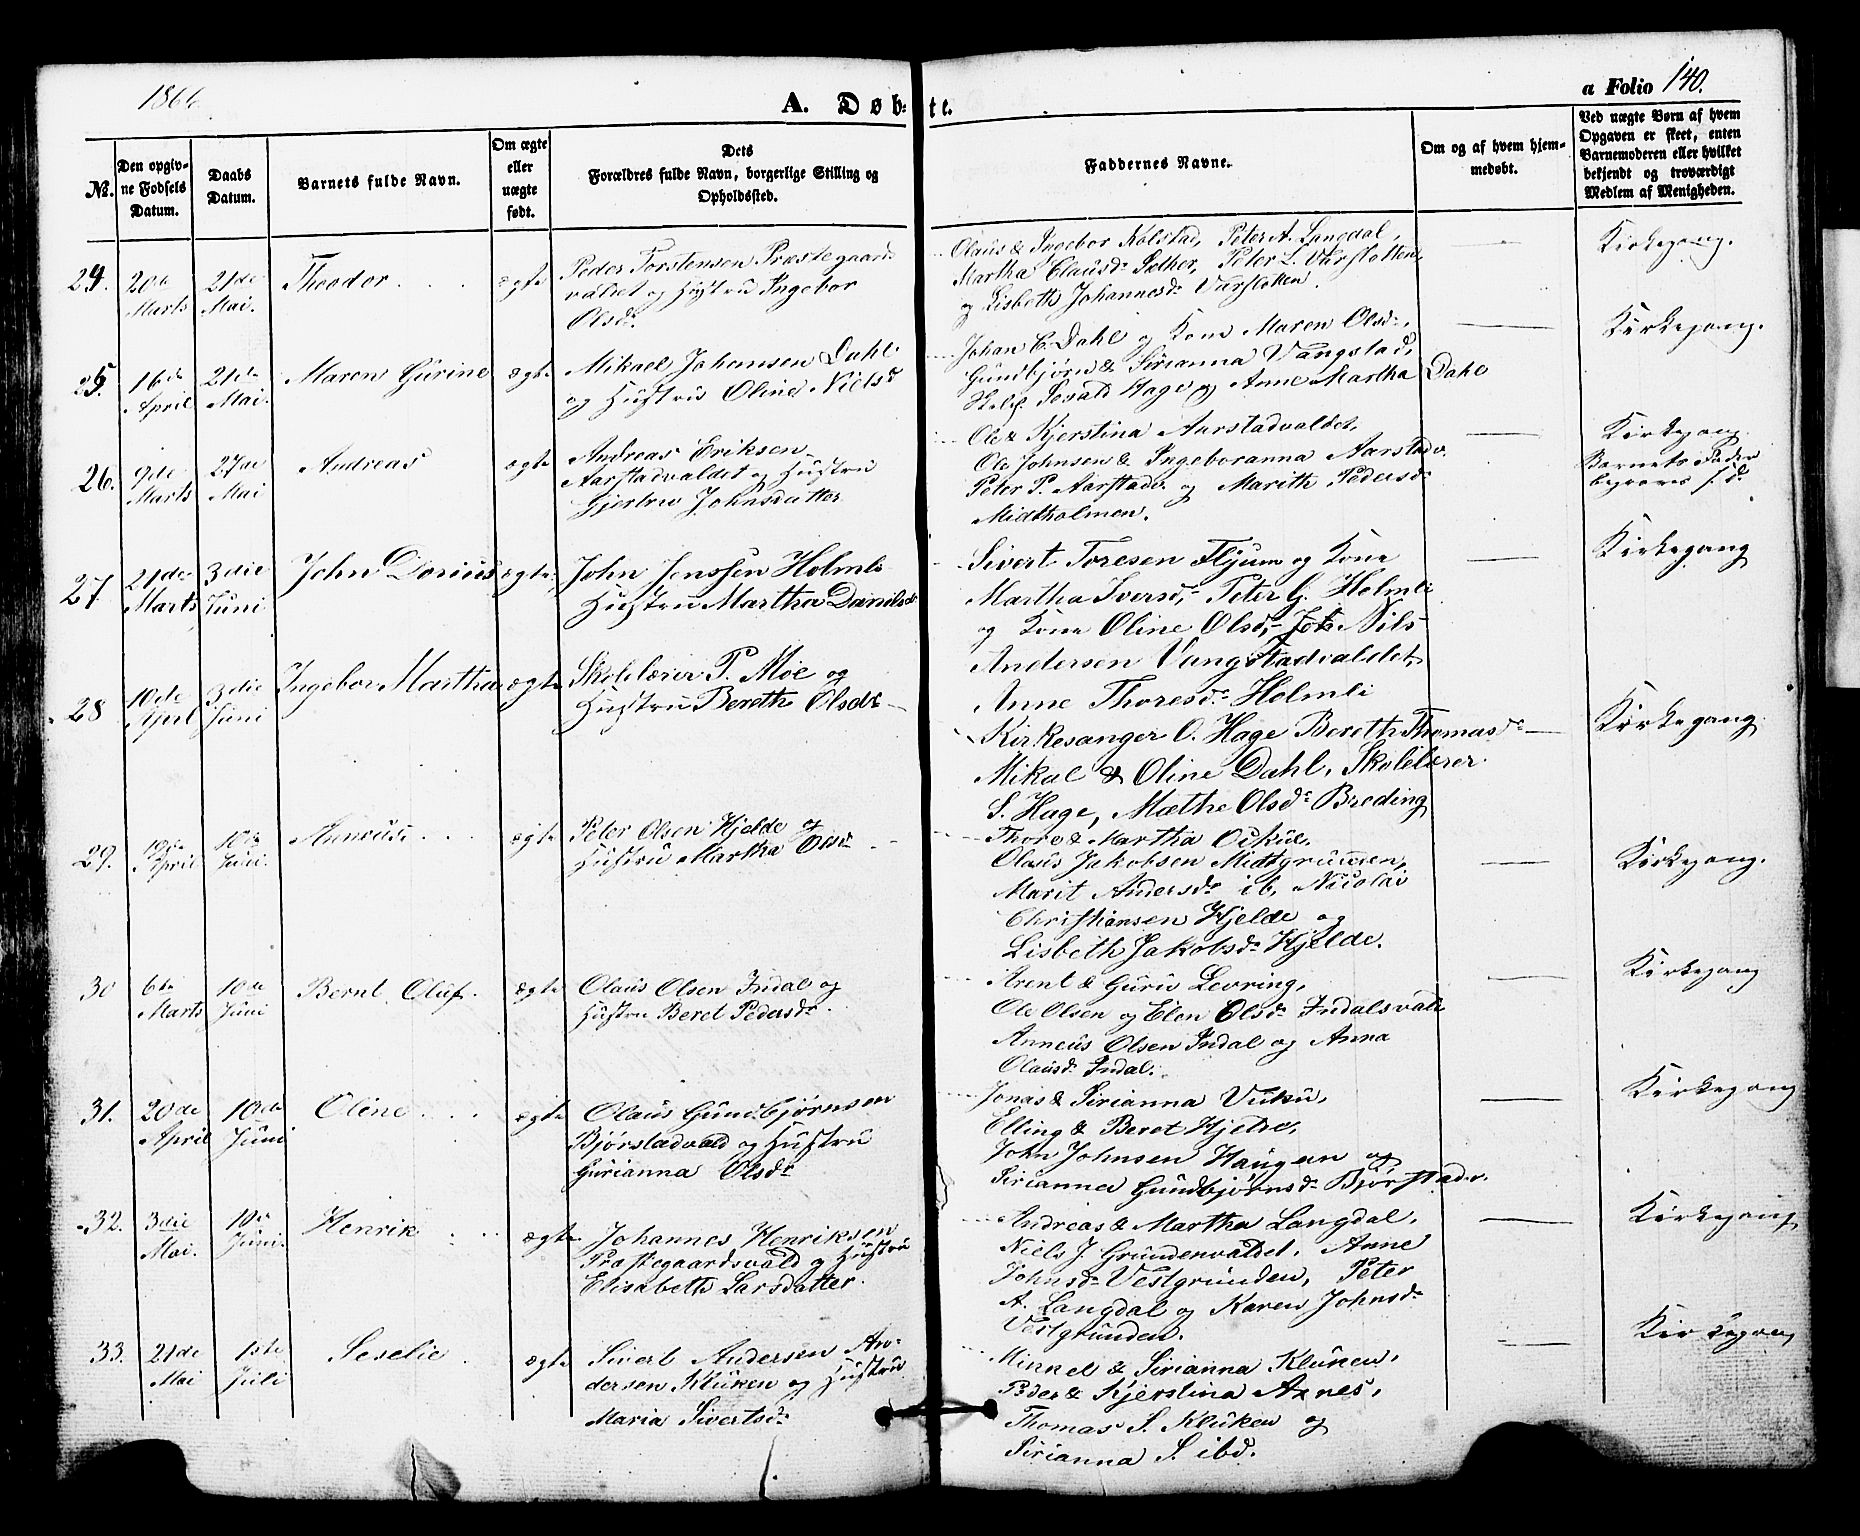 186
A. Døbte.
a Folio 140.
No.
Den opgivne Fødsels Datum.
Daabs Datum.
Barnets fulde Navn.
Om ægte eller uægte født.
Dets Forældres fulde Navn, borgerlige Stilling og Opholdssted.
Faddernes Navne.
Om og af hvem hjemmedøbt.
Ved uægte Børn af hvem Opgaven er skeet, enten Barnemoderen eller hvilket bekjendt og troværdigt Medlem af Menigheden.
24. 20de Marts 21de Mai. Theodor ægte
Peder Torstensen Præstegaards-
valdet og Hustru Ingebor
Olsdr.
Olaus & Ingebor Kolstad, Peter A. Langdal,
Martha Clausdr Sæther, Peter L. Varslotten
og Lisbeth Johannesdr Varslotten.
Kirkegang.
25. 16de April 21de Mai. Maren Gurine ægte
Mikael Johansen Dahl
og Hustru Oline Nielsdr
Johan C. Dahl og Kone Maren Olsdr,
Gundbjørn & Sirianna Vangstad,
Hage og Anne Martha Dahl
Kirkegang.
26. 9de Marts 27de Mai Andreas ægte
Andreas Eriksen
Aarstadvaldet og Hustru
Gjertru Johnsdatter
Ole & Kjerstina Aarstadvaldet,
Ole Johnsen & Ingeboranna Aarstadv.
Peter P. Aarstadv. og Marith Pedersdr
Midtholmen.
Kirkegang.
Barnets Fader
begraves s. d.
27 21de Marts 3die Juni John Dorius ægte
John Jenssen Holmli
Hustru Martha Danielsdr
Sivert Toresen Fljum og Kone
Martha Iversdr, Peter G. Holmli
og Kone Oline Olsdr, Nils
Andersen Vangstadvaldet,
Anne Thoresdr Holmli
Kirkegang
28 10de April 3die Juni Ingebor Martha ægte
Skolelærer P. Moe og
Hustru Bereth Olsdr
Kirkesanger O. Hage Bereth Thomasdr
Mikal & Oline Dahl, Skolelærer
S. Hage, Mæthe Olsdr Breding
Kirkegang.
29. April 10de Juni. Anneus ægte
Peter Olsen Hjelde og
Hustru Martha Olsdr
Thore & Martha
Olaus Jakobsen Midtgrunden,
Marit Andersdr ib, Nicolai
Christiansen Hjelde og
Lisbeth Jakobsdr Hjelde.
Kirkegang.
30 6te Marts 10de Juni Bernt Oluf. ægte
Olaus Olsen Indal og
Hustru Beret Pedersdr.
Arent & Guru Levring,
Ole Olsen og Elen Olsdr Indalsvald
Anneus Olsen Indal og Anna
Olausdr Indal.
Kirkegang
31. 20de April 10de Juni Oline ægte
Olaus Gundbjørnsen
Bjørstadvald og Hustru
Gurianna Olsdr
Jonas & Sirianna Vuku,
Elling & Beret Hjelde,
John Johnsen Haugen og
Sirianna Gundbjørnsdr Bjørstadv.
Kirkegang
32. 3die Mai. 10de Juni. Henrik ægte
Johannes Henriksen
Præstegaardsvald og Hustru
Elisabeth Larsdatter.
Andreas & Martha Langdal,
Niels J. Grundenvaldet, Anne
Johnsdr Vestgrunden, Peter
A. Langdal og Karen Johnsdr
Vestgrunden.
Kirkegang
33. 21de Mai 1ste Juli Seselie ægte
Sivert Andersen An-
dersen Kluken og Hustru
Maria Sivertsdr
Mikkel & Sirianna Kluken,
Peder & Kjerstina Axnes,
Thomas S. Kluken og
Sirianna S. ibd.
Kirkegang